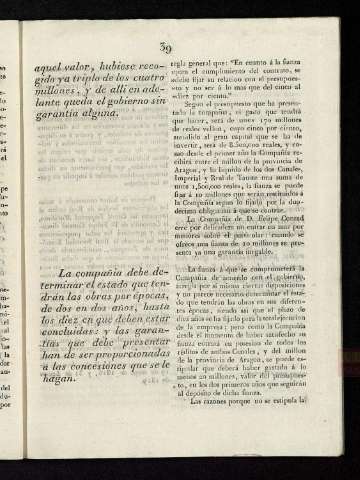 39
aquel valor, hubiese reco-
gido ya triplo de los cuatro
millones, y de allí en ade-
lante queda el gobierno sin
garantía alguna.
La compañía debe de-
terminar el estado que ten-
drán las obras por épocas,
de dos en dos años, hasta
los diez en que deben estar
concluidas: y las garan-
tías que debe presentar
han de ser proporcionadas
á las concesiones que se le
hagan.
regla general que: "En cuanto á la fianza
para el cumplimiento del contrato, se
debe fijar su relacion con el presupues-
to y no ser á lo mas que del cinco al
diez por ciento."
Segun el presupuesto que ha presen-
tado la compañía, el gasto que tendrá
que hacer, será de unos 170 millones
de reales vellon, cuyo cinco por ciento,
atendido al gran capital que se ha de
invertir, será de 8.500,000 reales, y co-
mo desde el primer año la Compañía re-
cibirá entre el millon de la provincia de
Aragon, y lo líquido de los dos Canales,
Imperial y Real de Tauste una suma de
unos 1,500,000 reales, la fianza se puede
fijar á 10 millones que serán restituidos á
la Compañía segun lo fijado por la duo-
décima obligacion á que se contrae.
La Compañía de D. Felipe Conrad
cree por delicadeza no entrar en mas por
menores sobre el particular; cuando se
ofrece una fianza de 10 millones se pre-
senta ya una garantía innegable.
La fianza á que se comprometerá la
Compañía de acuerdo con el gobierno,
arregla por sí misma ciertas disposiciones
y no parece necesario determinar el esta-
do que tendrán las obras en sus diferen-
tes épocas, siendo así que el plazo de
diez años se ha fijado para la conclusion
de la empresa; pero como la Compañía
desde el momento de haber satisfecho su
fianza entrará en posesion de todos los
réditos de ambos Canales, y del millon
de la provincia de Aragon, se puede es-
tipular que deberá haber gastado á lo
menos 20 millones, valor del presupues-
to, en los dos primeros años que seguirán
al depósito de dicha fianza.
Las razones porque no se estipula la